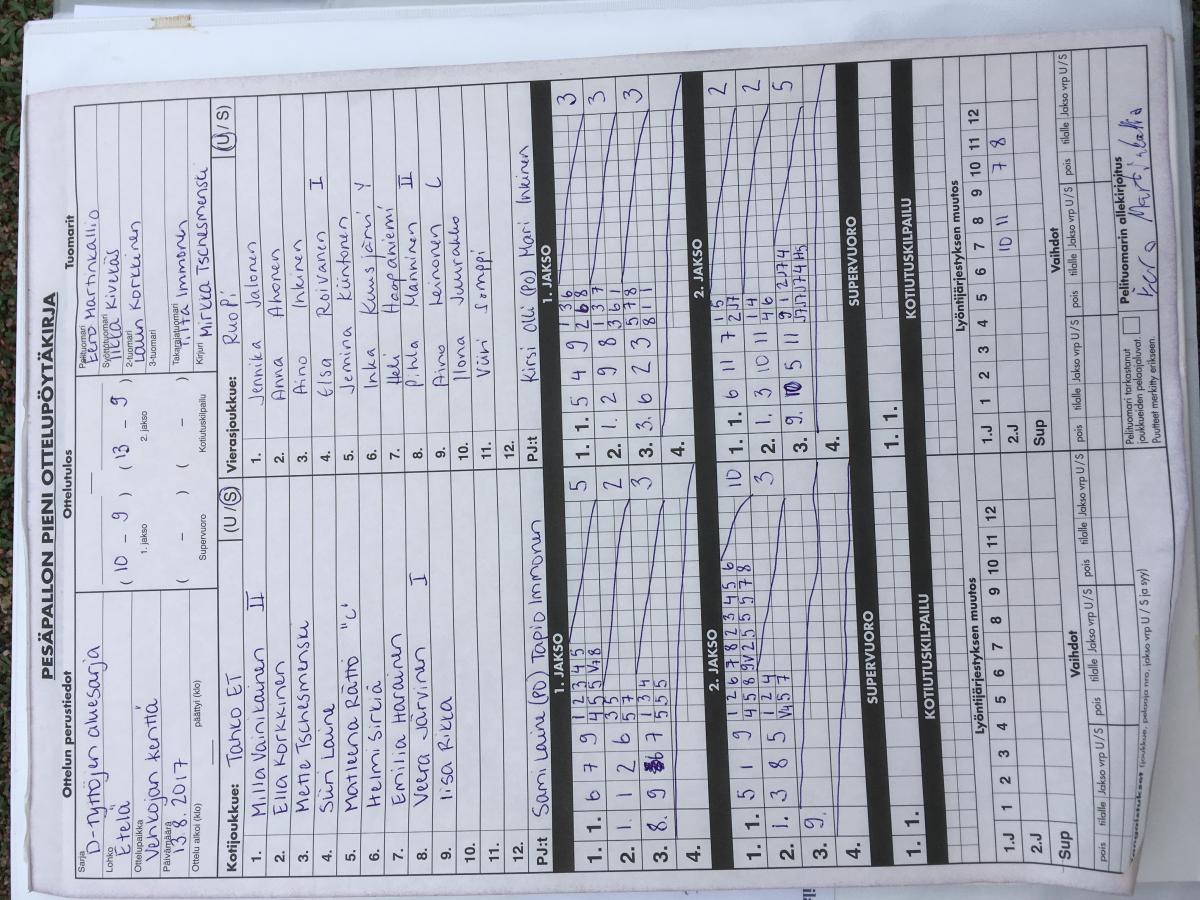 PESÄPALLON PIENI OTTELUPÖYTÄKIRJA
Ottelun perustiedot
Ottelutulos
Tuomarit
Sarja
D-tyttöjen aluesarja
Lohko
Etelä
Ottelupaikka
Venkojan kenttä
Päivämäärä
13.8.2017
Ottelu alkoi (klo)
päättyi (klo)
( 10 - 9 ) ( 13 - 9 )
1. jakso
2. jakso
( - ) ( - )
Supervuoro
Kotiutuskilpailu
Pelituomari
Eero Martinkallio
Syöttötuomari
Iikka Kivekäs
2-tuomari
Lauri Korkkinen
3-tuomari
Takarajatuomari
Tiita Immonen
Kirjuri Mirkka Tschesmenski
Kotijoukkue: Tahko ET (U / S)
1. Milla Vainikainen II
2. Ella Korkkinen
3. Mette Tschesmenski
4. Siiri Laine
5. Matleena Rättö "L"
6. Helmi Sirkiä
7. Emilia Harainen
8. Veera Järvinen I
9. Iisa Rikka
10.
11.
12.
PJ:t Sami Laine (PO) Tapio Immonen
Vierasjoukkue: RuoPi (U / S)
1. Jennika Jalonen
2. Anna Ahonen
3. Aino Inkinen
4. Elsa Roivanen I
5. Jemina Kiintonen
6. Inka Kuusjärvi Y
7. Heli Haapaniemi
8. Pihla Manninen II
9. Aino Leinonen L
10. Ilona Juurakko
11. Viivi Somppi
12.
PJ:t Kirsi Olli (PO) Mari Inkinen
1. JAKSO
1. 1. 6 7 9 1 2 3 4 5 5
4 5 5 V7 8
2. 1. 1 2 6 3 5 2
5 7
3. 8. 9 6 7 1 3 4 3
5 5 5
4.
1. JAKSO
1. 1. 5 4 9 1 3 6 3
2 6 8
2. 1. 2 9 8 1 3 7 3
3 6 1
3. 3. 6 2 3 5 7 8 3
8 1 1
4.
2. JAKSO
1. 1. 5 1 9 1 2 6 7 8 2 3 4 5 6 10
4 5 8 9V 2 5 5 5 7 8
2. 1. 3 8 5 1 2 4 3
V4 5 7
3. 9.
4.
2. JAKSO
1. 1. 6 11 7 1 5 2
2 J7
2. 1. 3 10 11 1 4 2
4 6
3. 9. 10 5 11 9 1 2 J7 4 5
J7 J7 J7 4 H5
4.
SUPERVUORO
1. 1.
KOTIUTUSKILPAILU
SUPERVUORO
1. 1.
KOTIUTUSKILPAILU
Lyöntijärjestyksen muutos
1 2 3 4 5 6 7 8 9 10 11 12
1.J
2.J
Sup
Lyöntijärjestyksen muutos
1 2 3 4 5 6 7 8 9 10 11 12
1.J 10 11 7 8
2.J
Sup
Vaihdot
pois tilalle Jakso vrp U/S pois tilalle Jakso vrp U/S pois tilalle Jakso vrp U/S
Vaihdot
pois tilalle Jakso vrp U/S pois tilalle Jakso vrp U/S pois tilalle Jakso vrp U/S
(joukkue, pelaaja nro, jakso vrp U / S ja syy)
Pelituomari tarkastanut
joukkueiden pelaajaluvat.
Puutteet merkitty erikseen.
Pelituomarin allekirjoitus
Eero Martinkallio